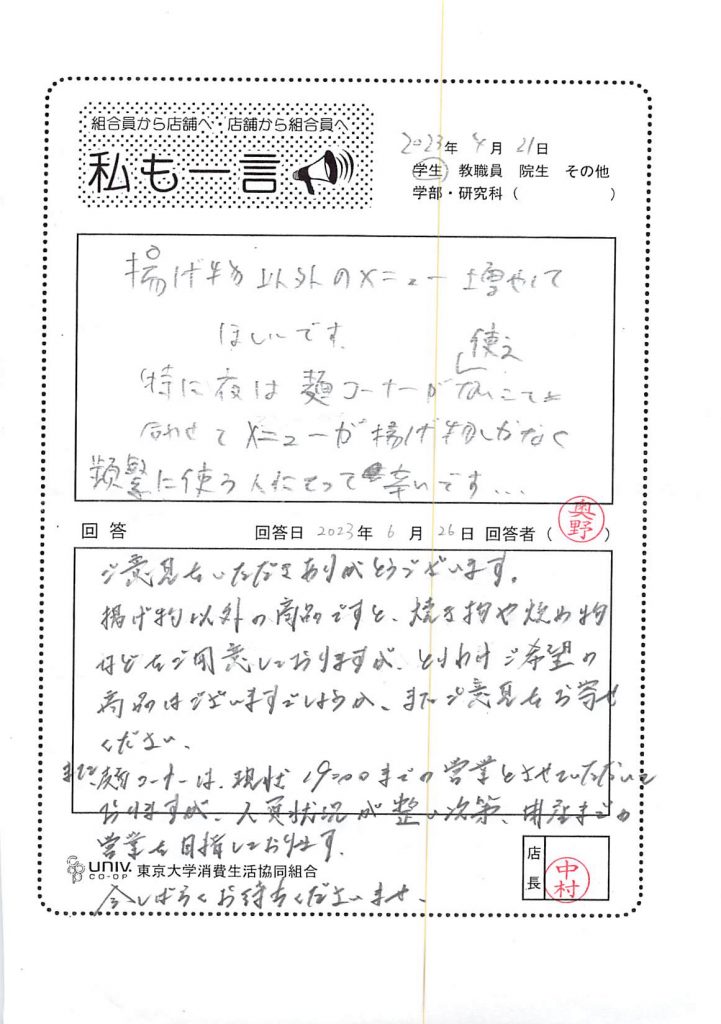 組合員から店舗へ・店舗から組合員へ
私も一言
2023年 4月 21日
学生 教職員 院生 その他
学部・研究科（ ）
揚げ物以外のメニュー増やして
ほしいです。
使え
特に夜は麺コーナーがないことと
合わせてメニューが揚げ物しかなく
頻繁に使う人にとって辛いです...
回答 回答日 2023年 6月 26日 回答者（奥野）
ご意見をいただきありがとうございます。
揚げ物以外の商品ですと、焼き物や炒め物
などをご用意しておりますが、とりわけご希望の
商品はございますでしょうか、またご意見をお寄せ
ください。
また、麺コーナーは、現状 19:00までの営業とさせていただいて
おりますが、人員状況が整い次第、閉店までの
営業を目指しております。
UNIV. CO-OP 東京大学消費生活協同組合
店長 中村
今しばらくお待ちくださいませ。